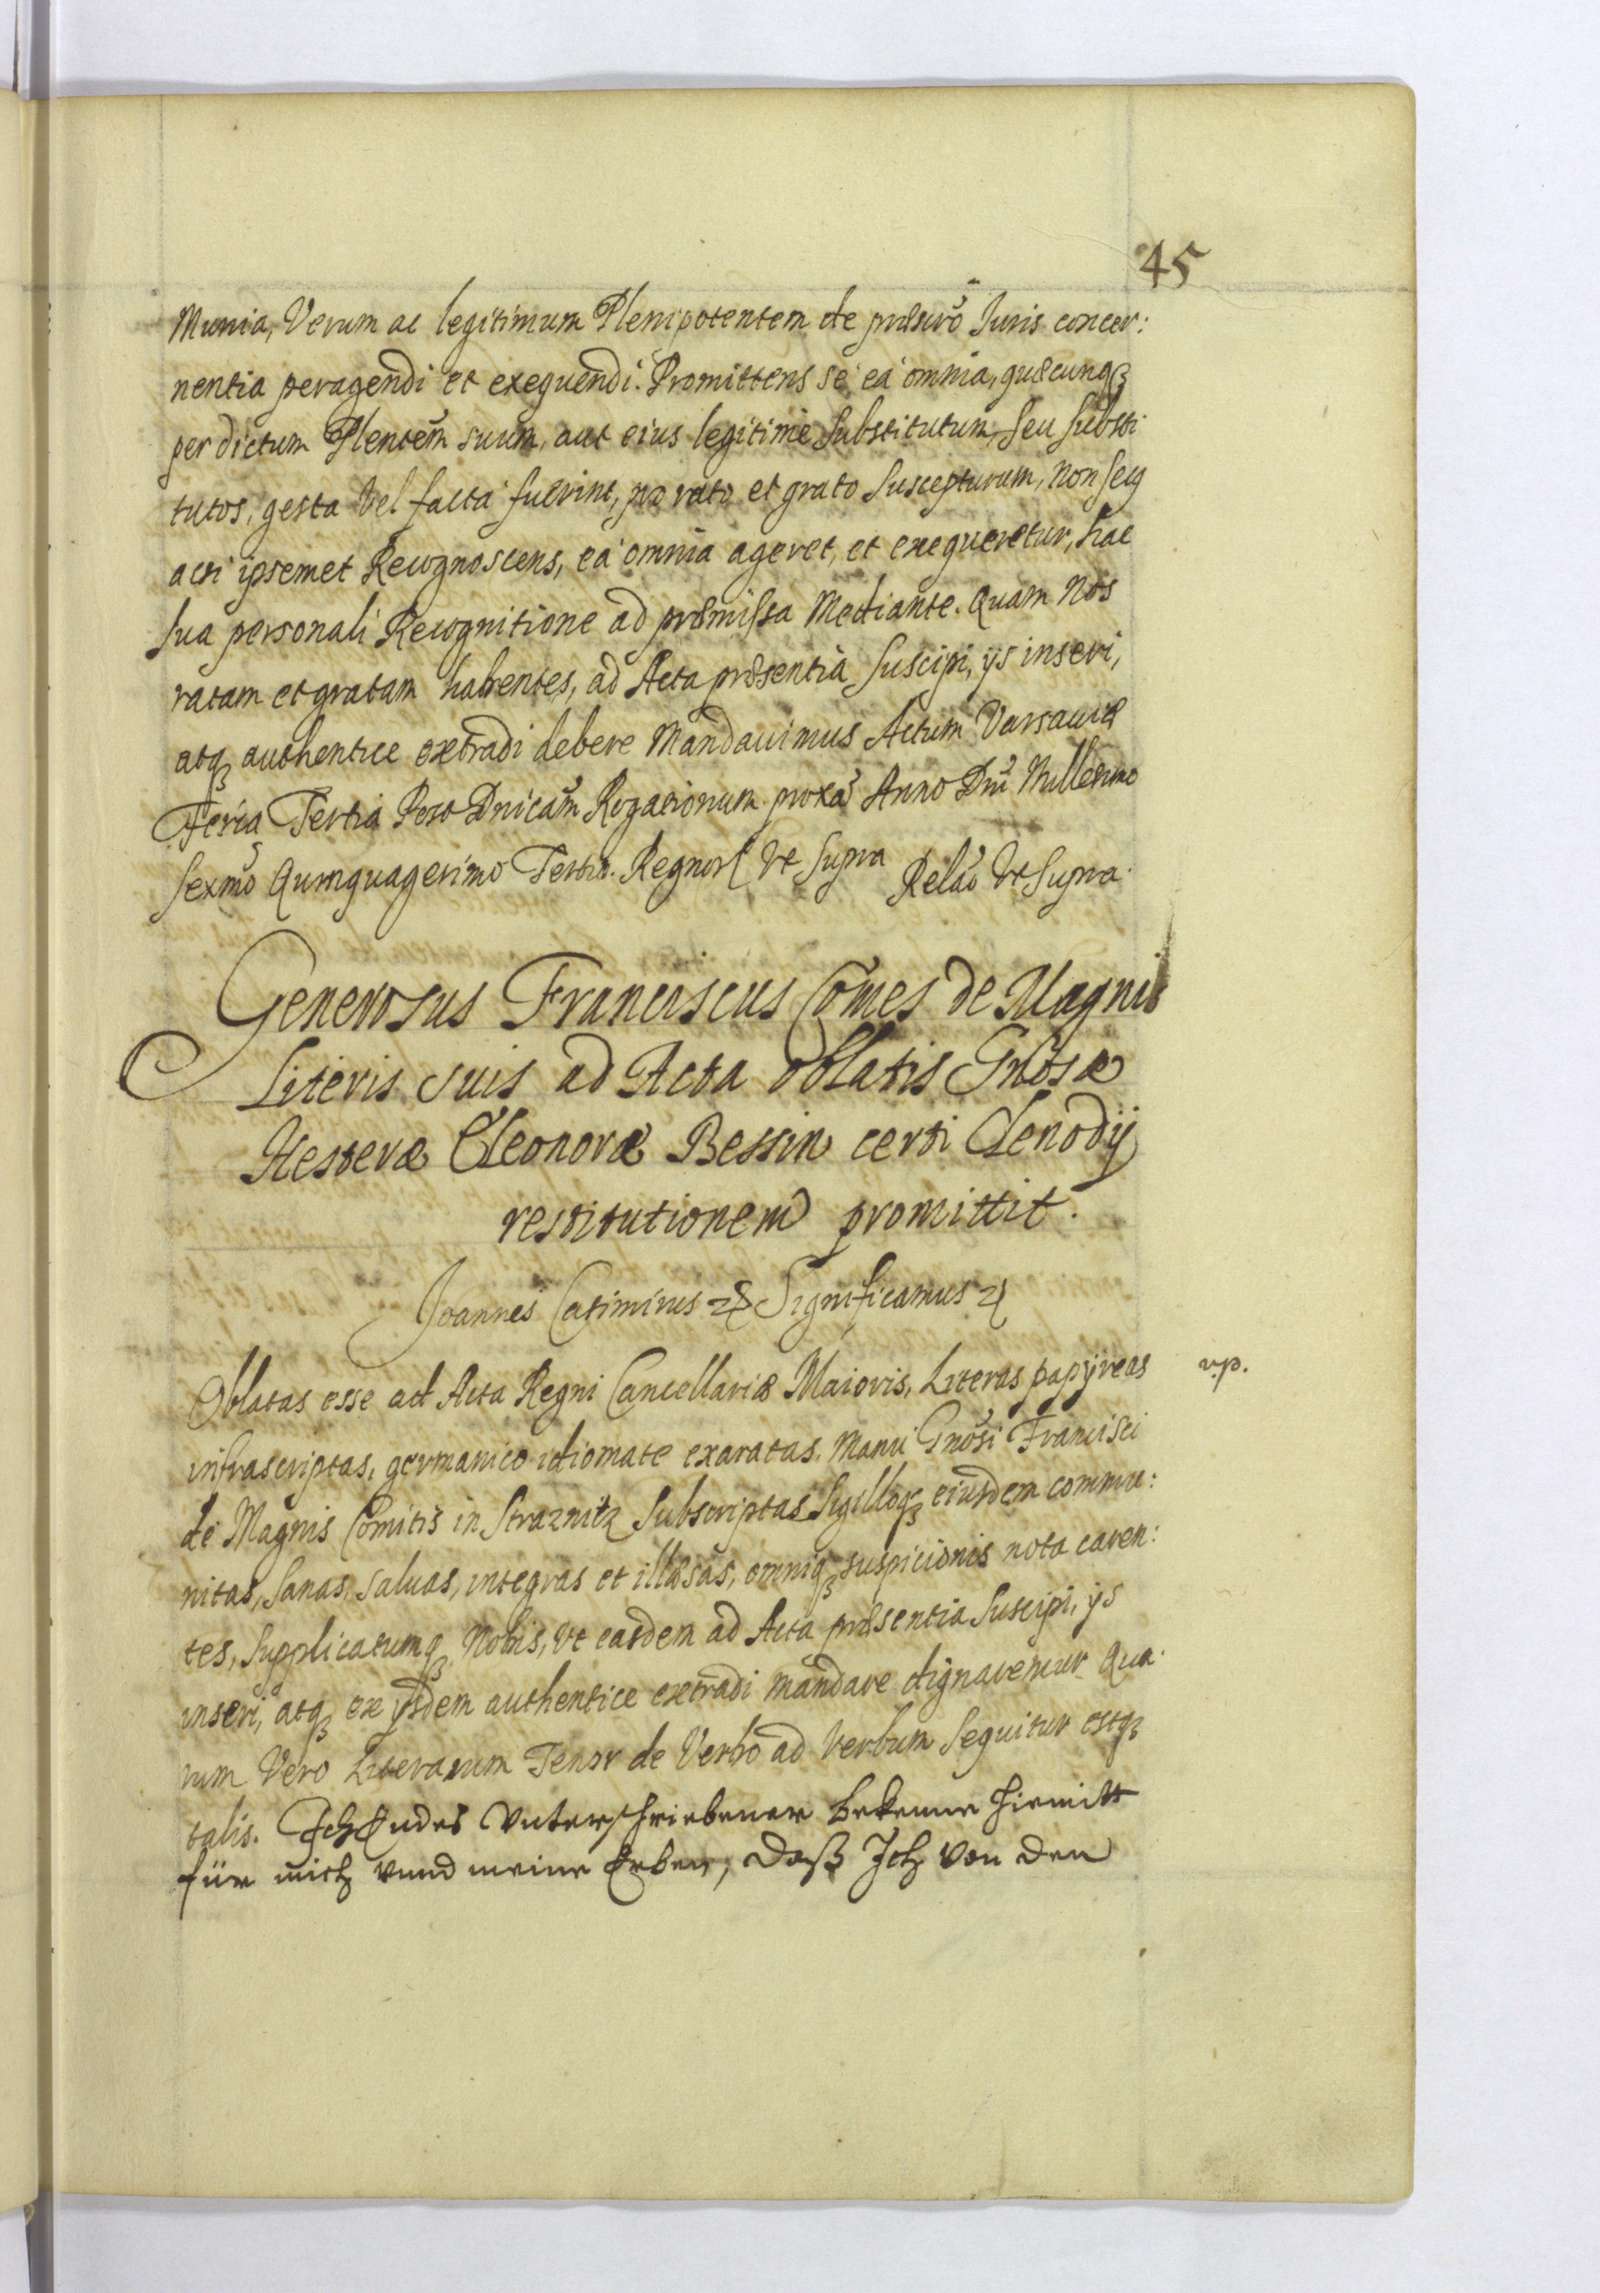 45
Munia, Verum ac legitimum Plenipotentem de præscrõ Iuris concer:
nentia peragendi et exequendi. Promittens se ea omnia, quæcunqꝫ
per dictum Plentem̃ suum, aut eius legitime Substitutum, seu substi
tutos, gesta vel facta fuerint, pro rato et grato suscepturum, non secꝫ
acsi ipsemet Recognoscens, ea omnia ageret, et exequeretur, hac
sua personali Recognitione ad præmissa Mediante. Quam Nos
ratam et gratam habentes, ad Acta præsentia suscipi, ijs inseri,
atqꝫ authentice extradi debere Mandavimus Actum Varsaviæ
Feria Tertia Post Dnicam̃ Rogationum proxã Anno Dnĩ Millesimo
sexmõ Quinquagesimo Tertio. Regnorꝝ Vt supra Relaõ Vt Supra
Generosus Franciscus Comes de Magnis
Literis suis ad Acta oblatis Gnosæ
Hesteræ Eleonoræ Bessin certi Clenodij
restitutionem promittit.
Joannes Casimirus ꝛꝛ Significamus ꝛ
Oblatas esse ad Acta Regni Cancellariæ Maioris, Literas papyreas
v.p.
infrascriptas, germanico idiomate exaratas, Manu Gnõsi Francisci
de Magnis Comitis in Straznitz Subscriptas Sigilloqꝫ eiusdem commu:
nitas, Sanas, salvas, integras et illæsas, omniqꝫ suspicionis nota caren:
tes, supplicatumqꝫ Nobis, Vt easdem ad Acta præsentia suscipi, ijs
inseri, atqꝫ ex ijsdem authentice extradi mandare dignaremur Qua
rum Vero Literarum Tenor de Verbo ad Verbum sequitur estqꝫ
talis. Ich Endes Vnterschriebener bekenne hiemitt
für mich vnnd meine Erben, daß Ich von den